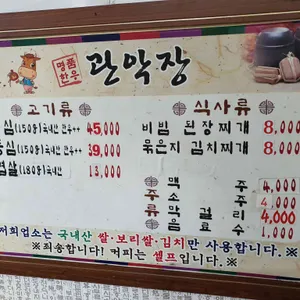 명품
한우
관악장
고기류
식사류
심(150g)국내산 한우++ 45,000
등심(150g)국내산 한우++ 39,000
겹살(180g)국내산 13,000
비빔 된장찌개 8,000
묵은지 김치찌개 8,000
주류
맥주 4,000
소주 4,000
막걸리 4,000
음료수 1,000
저희업소는 국내산 쌀·보리쌀·김치만 사용합니다.※
※죄송합니다! 커피는 셀프입니다.※